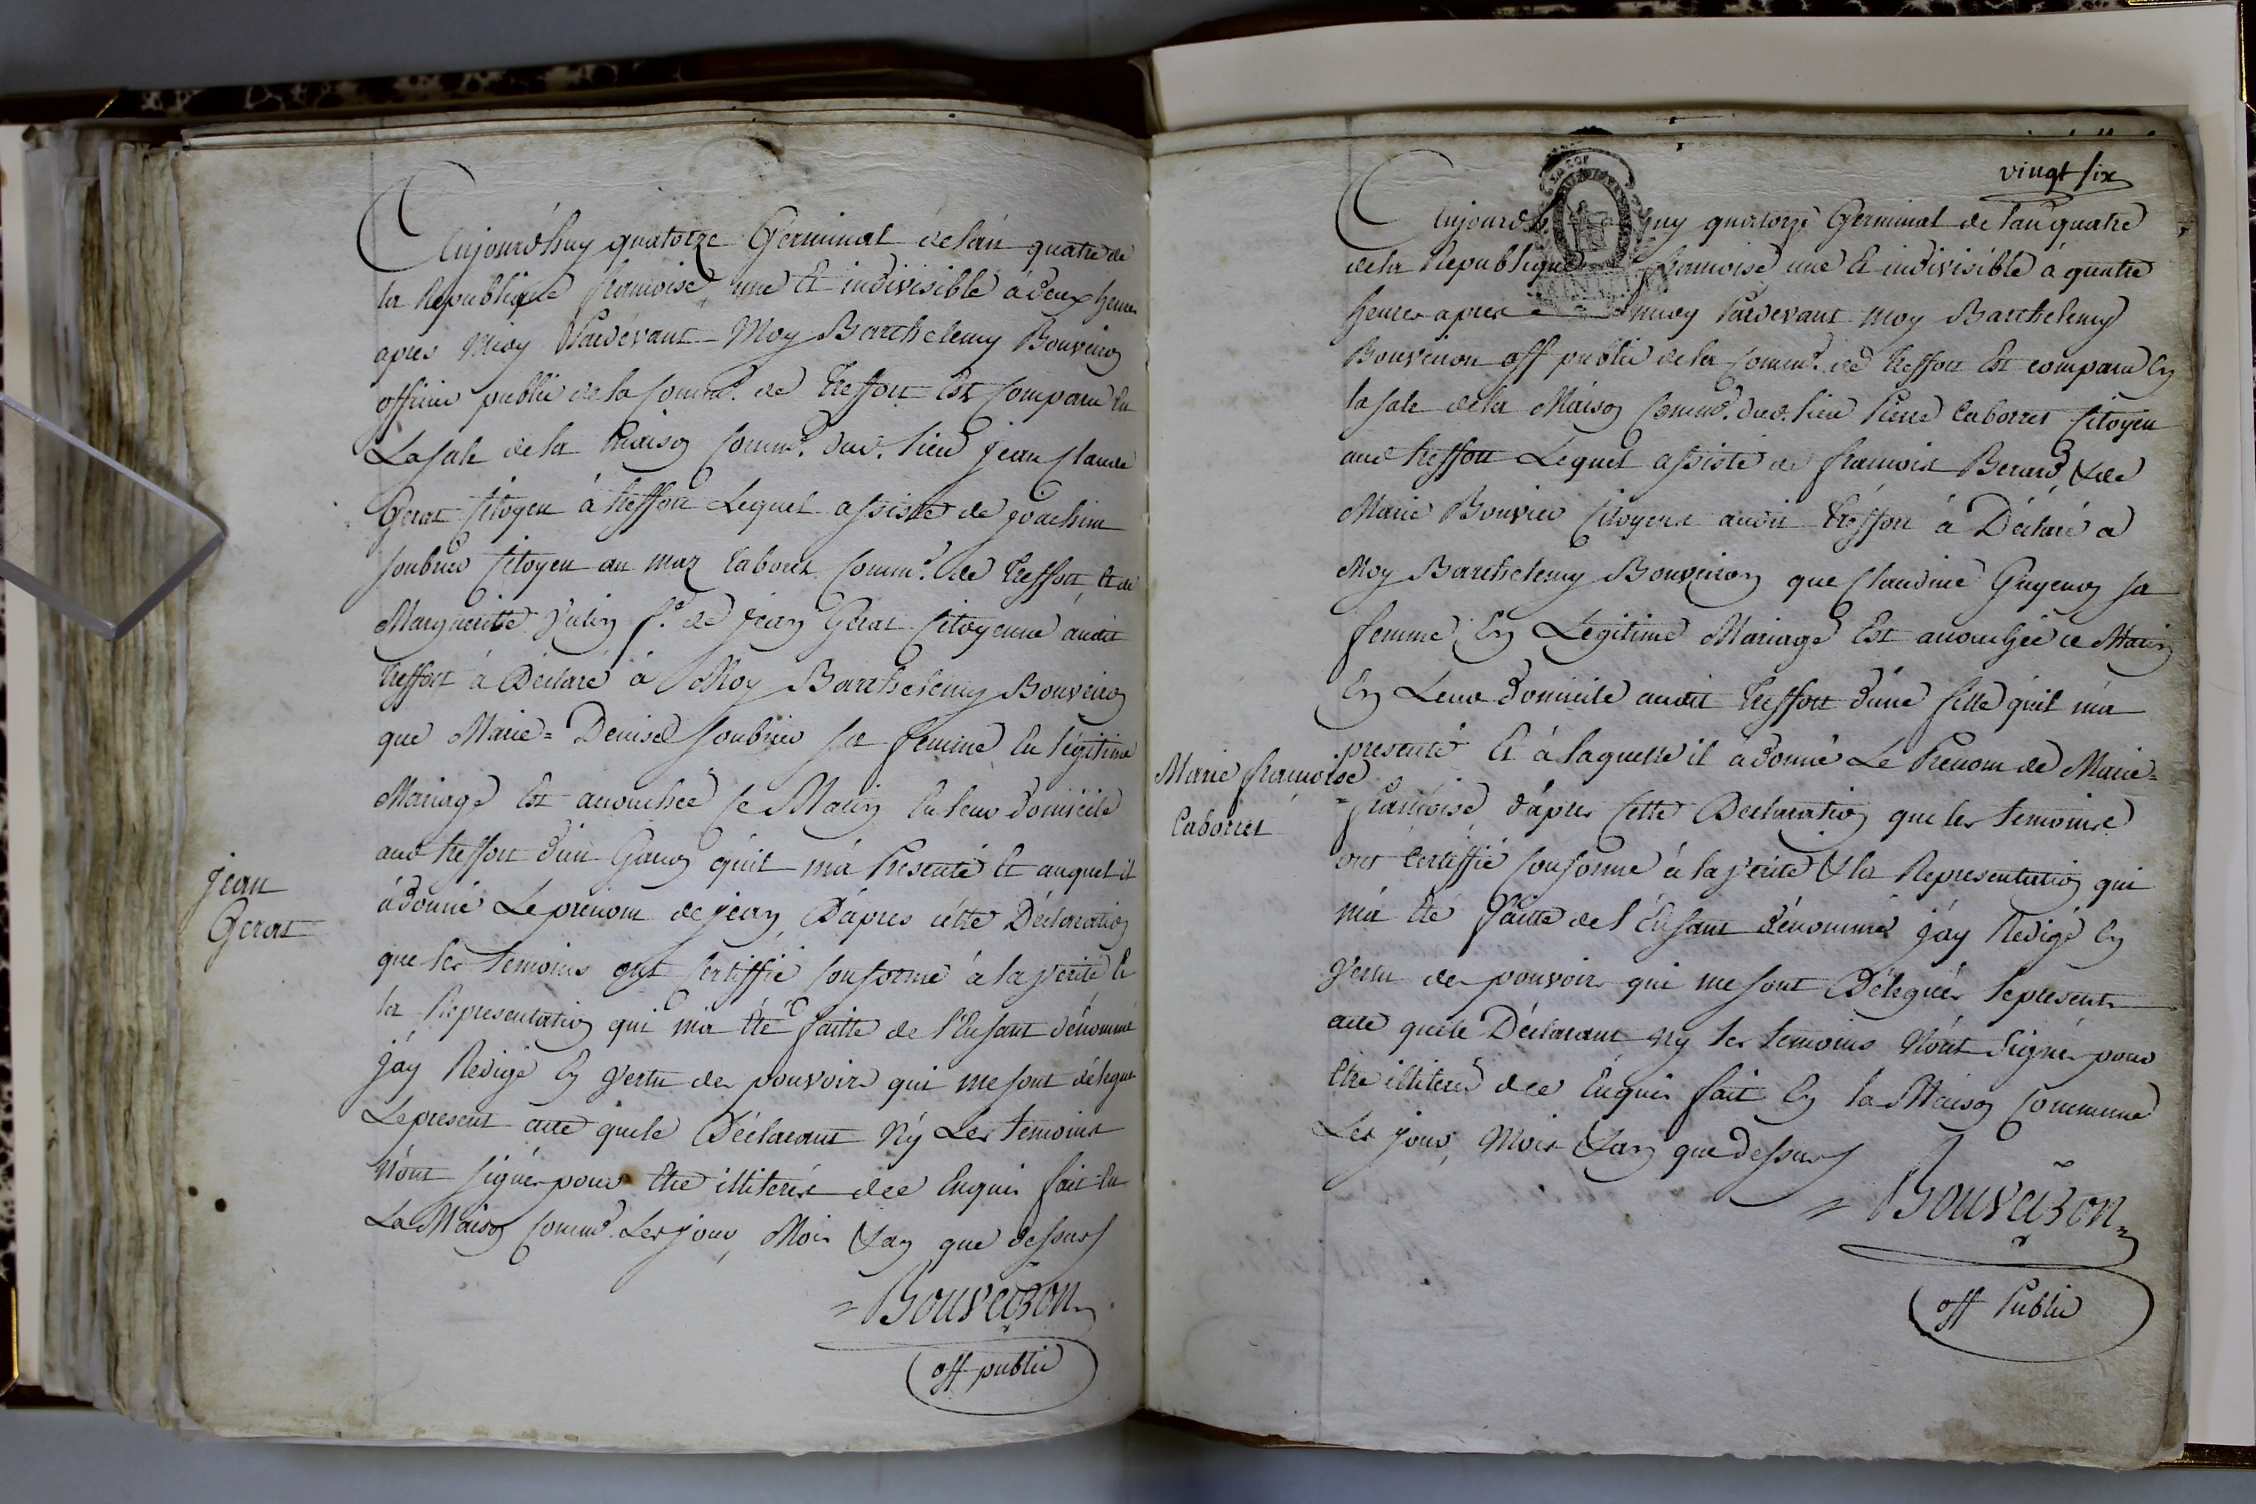 Aujourd'huy quatorze Germinal de l'an quatre de
la Republique françoise une Et indivisible à deux heures
apres Midy Pardevant Moy Barthelemy Bouveiron
officier public de la Comm.e de Treffort Est Comparu En
La sale de la Maison Comm.e dud. lieu Jean Claude
Gerat Citoyen à treffort Lequel assisté de joachim
Soubrier Citoyen au maz laboret Comm.e de Treffort, Et de
Margueritte f.e de Jean Gerat Citoyenne audit
treffort à Déclaré à Moy Barthelemy Bouveiron
que Marie = Denise Soubrier sa femme En légitime
Mariage Est accouchée ce Matin En leur domicile
aud treffort d'un Garçon qu'il m'a Presenté Et auquel il
à donné Le prenom de jean, D'apres cette Déclaration
que les temoins ont Certiffié Conforme à la verité Et
la Representation qui m'a Eté faitte de l'Enfant dénommé
j'ay Redigé En vertu des pouvoirs qui me sont délegué
Le present acte que le Déclarant Ny Les temoins
N'ont signés pour Etre illiterés dee Enquis fait En
La Maison Comm.e Les jour, Mois & an que dessus
= Bouveiron
off public
jean
Gerat
vingt six
Aujourd huy quatorze Germinal de l'an quatre
de la Republique françoise une Et indivisible à quatre
heures apres midy Pardevant moy Barthelemy
Bouveiron off public de la Comm.e de treffort Est comparu En
la sale de la Maison Comm.e dud. lieu Pierre Laborret Citoyen
aud treffort Lequel assisté de francois Berard & de
Marie Bouvier Citoyens audit Treffort à Déclaré a
Moy Barthelemy Bouveiron que Claudine Guyenon sa
femme En Légitime Mariage Est accouchée ce Matin
En Leur domicile audit Treffort d'une fille qu'il m'a
presenté Et à laquelle il à donné Le Prenom de Marie =
= françoise d'apres Cette Declaration que les temoins
ont Certiffié Conforme à la verité & la Representation qui
m'a Eté faitte de l'Enfant dénommé j'ay Redigé En
vertu des pouvoirs qui me sont Délegués le present
acte que le Déclarant Ny les temoins N'ont Signés pour
Etre illiterés dee Enquis fait En la Maison Commune
Les jour, Mois & an que dessus
= Bouveiron
off Public
Marie françoise
Laborret